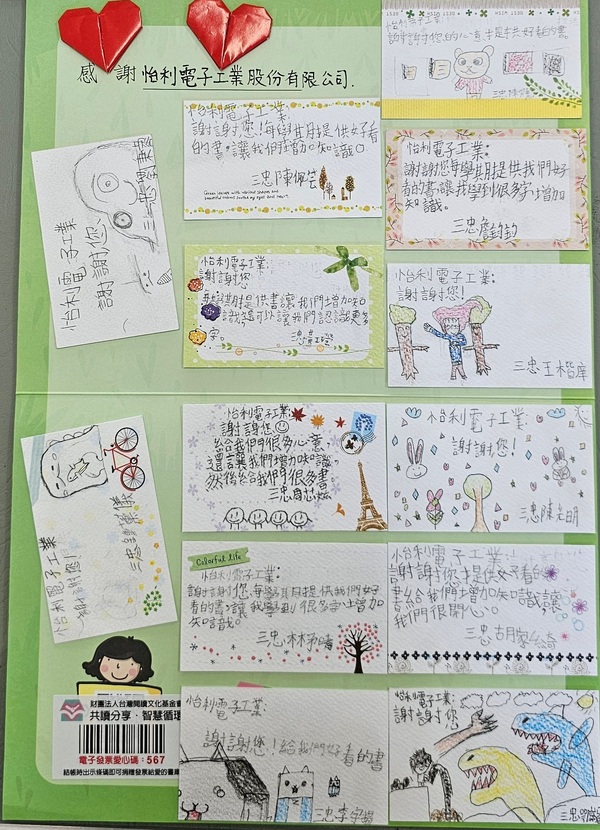 感 謝 怡利電子工業股份有限公司.
怡利電子工業:
謝謝您!每學期提供好看
的書,讓我們增加知識。
三忠陳佩芸
Green leaves with varied shapes and
beautiful colors soften my eyes and heart.
怡利電子工業:
謝謝您每學期提供我們好
看的書,讓我學到很多字,增加
知識。
怡利電子工業
謝謝您
三忠
怡利電子工業:
謝謝您
每學期提供書讓我們增加知
識,還可以讓我們認識更多
字。
怡利電子工業:
謝謝您!
三忠王楷
怡利電子工業:
謝謝您
給我們很多心意
還讓我們增加知識。
然後給我們很多書
三忠
怡利電子工業:
謝謝您!
三忠陳
怡利電子工業
謝謝您!
三忠
Colorful life
怡利電子工業:
謝謝您,每學期提供我們好
看的書,讓我學到很多字,增加
知識。
三忠林
怡利電子工業:
謝謝您提供好看
書給我們增加知識,讓
我們很開心。
三忠胡
財團法人台灣閱讀文化基金會
共讀分享・智慧循環
電子發票愛心碼:567
結帳時出示條碼即可捐贈發票給愛的書庫
怡利電子工業:
謝謝您!給我們好看的書
三忠李宇
怡利電子工業:
謝謝您
三忠